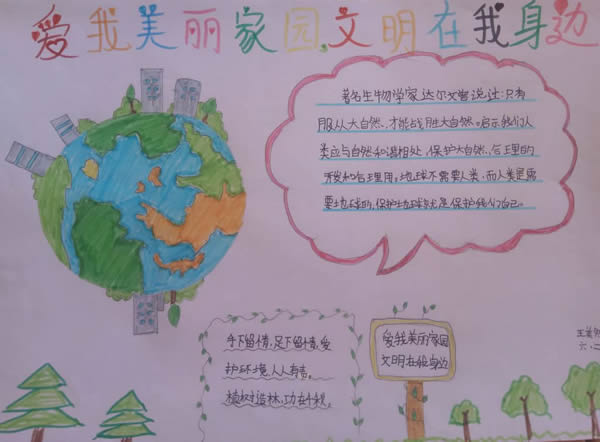 爱我美丽家园,文明在我身边
著名生物学家达尔文曾说过:只有
服从大自然,才能战胜大自然。启示我们人
类应与自然和谐相处,保护大自然,合理的
开发和合理用,地球不需要人类,而人类更需
要地球的,保护地球就是保护我们自己。
手下留情,足下留情,爱
护环境,人人有责。
植树造林,功在千秋。
爱我美丽家园
文明在我身边
六.二